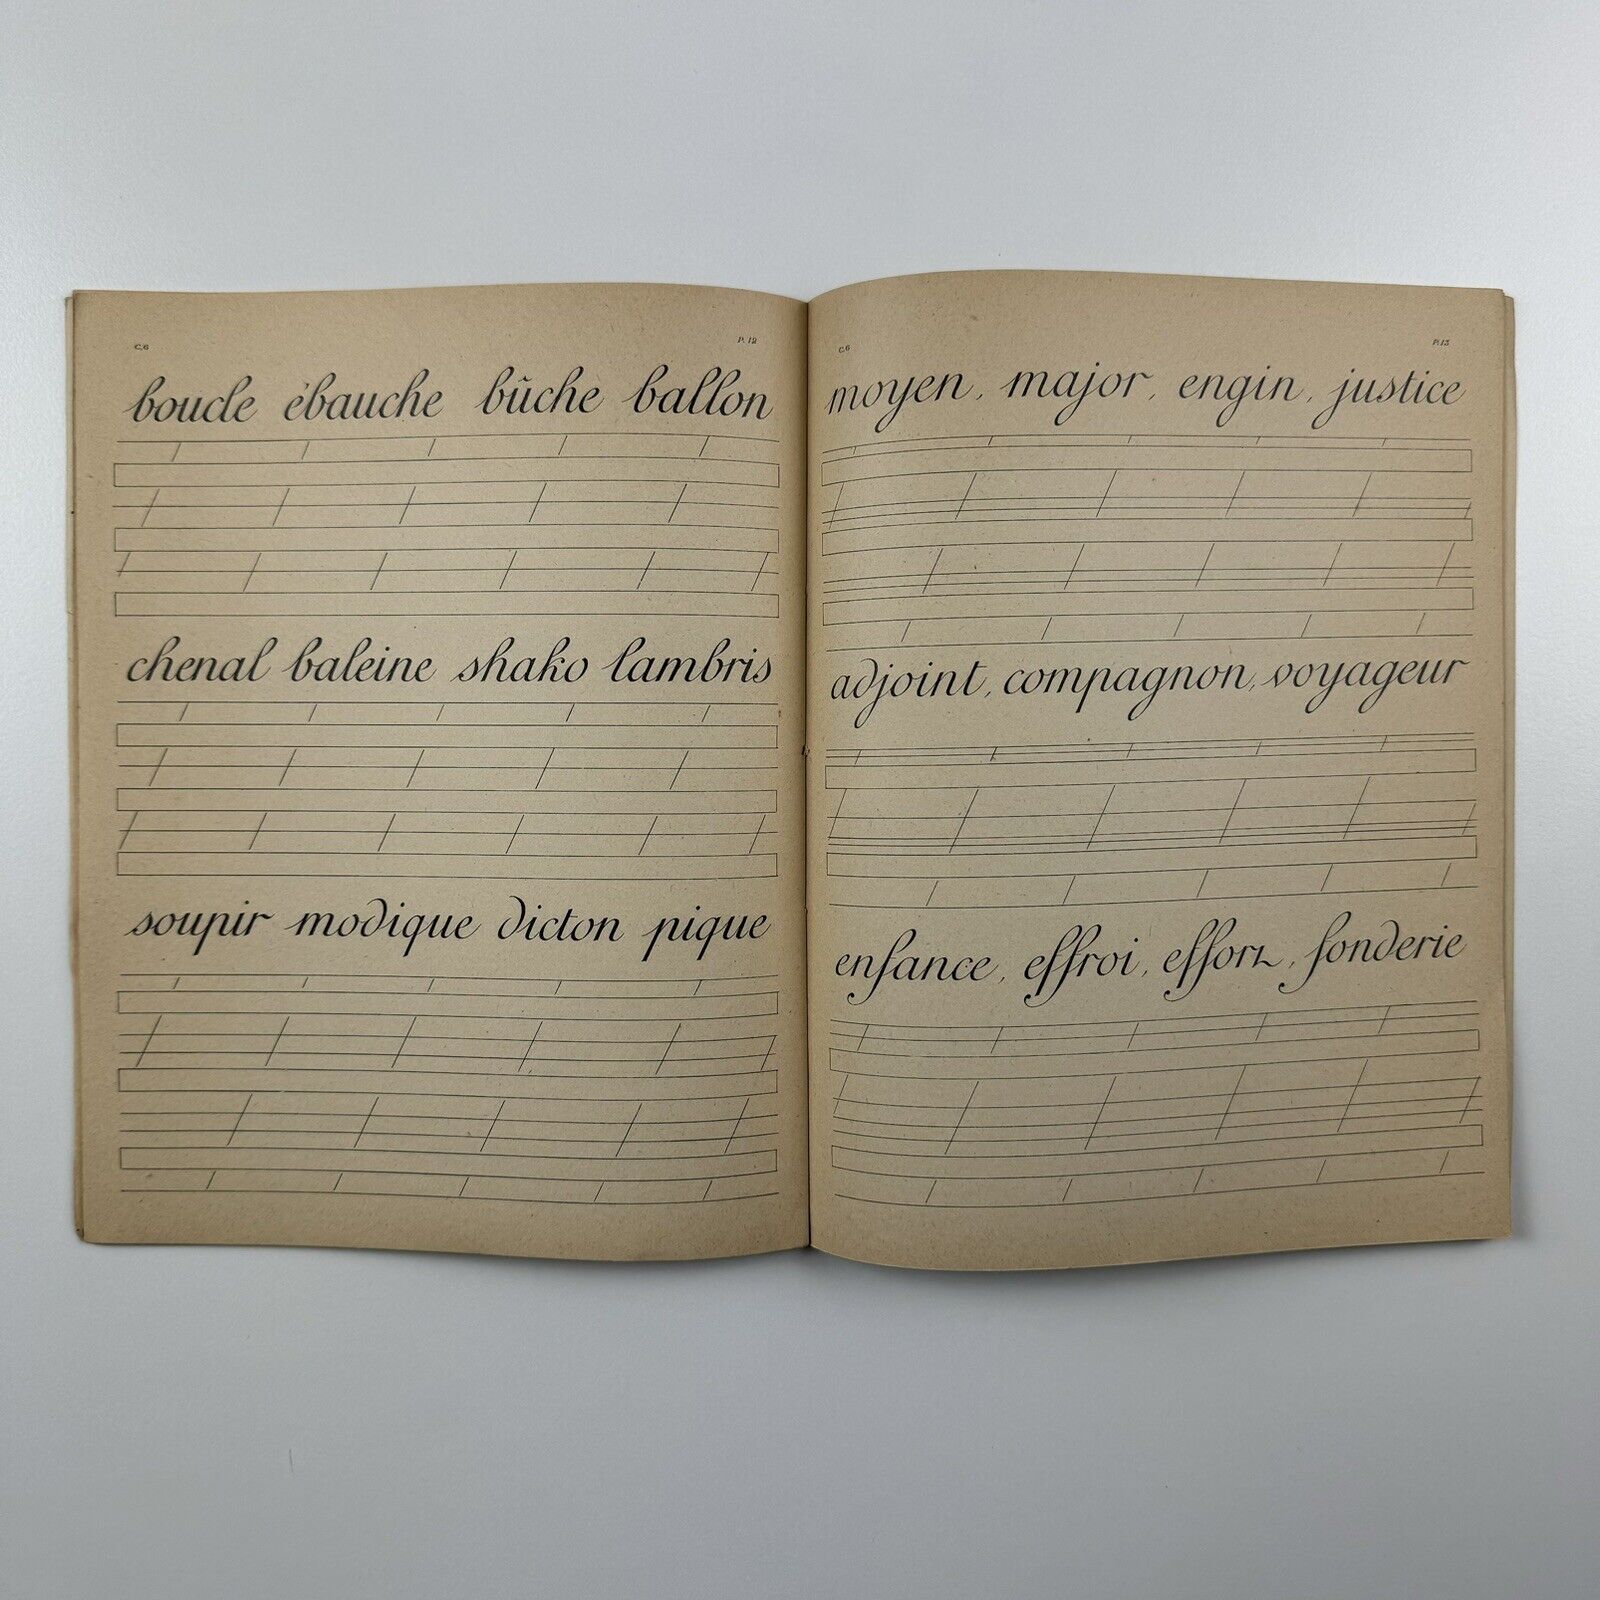 C.6 P.12
boucle ébauche bûche ballon
chenal baleine shako lambris
soupir modique dicton pique
C.6 P.13
moyen, major, engin, justice
adjoint, compagnon, voyageur
enfance, effroi, effort, fonderie